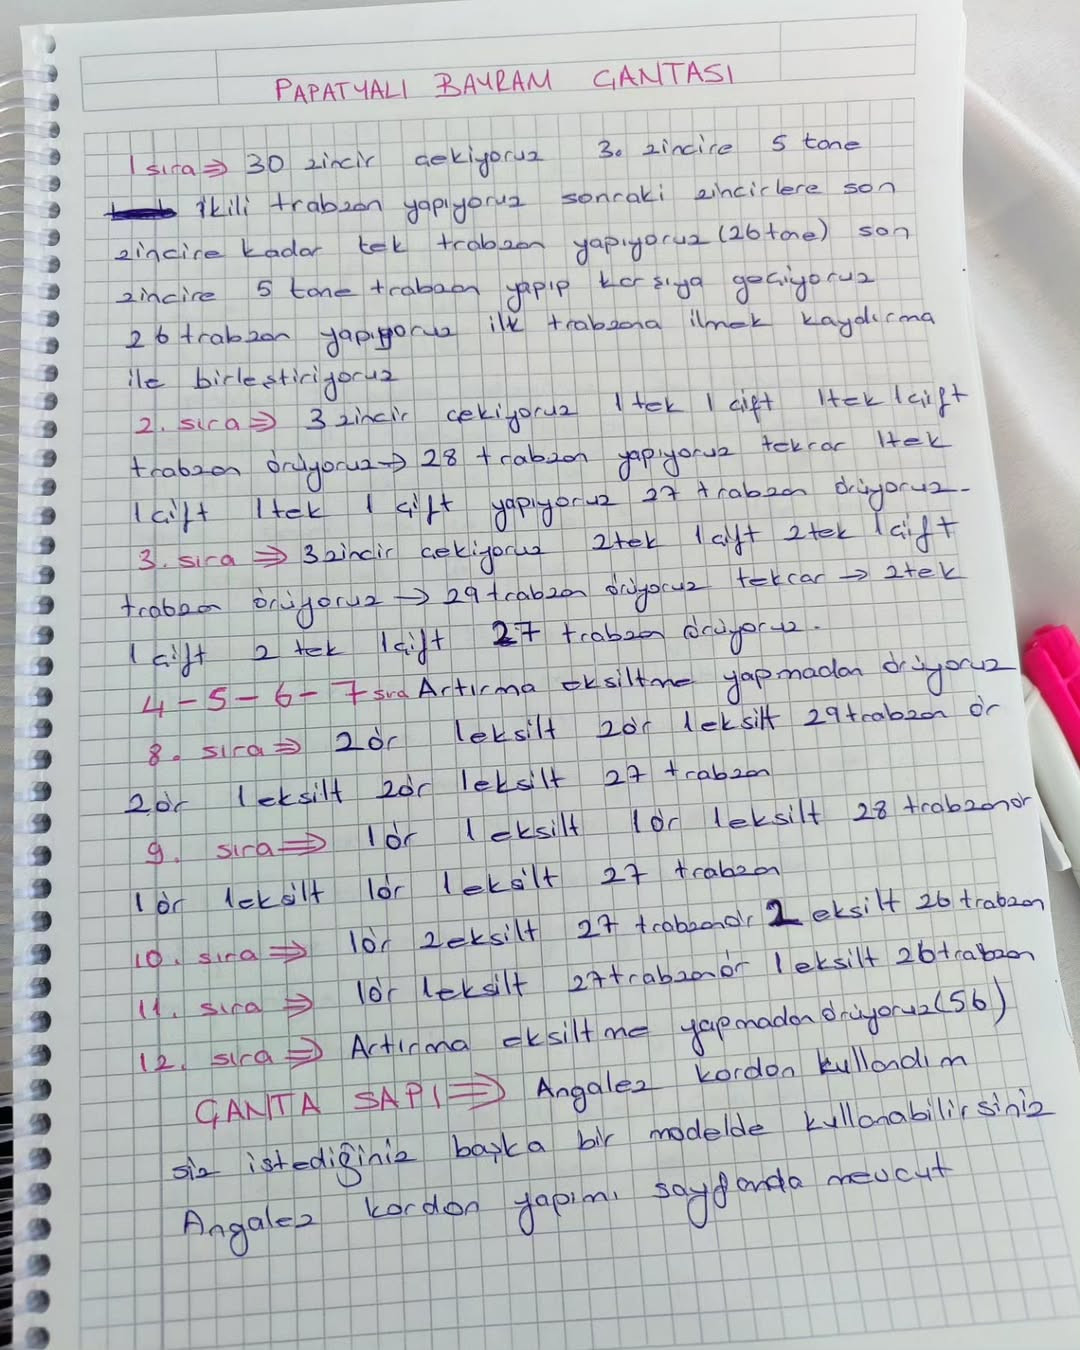 PAPATYALI BAYRAM ÇANTASI
1 sıra ⇒ 30 zincir çekiyoruz 3. zincire 5 tane
ikili trabzan yapıyoruz sonraki zincirlere son
zincire kadar tek trabzan yapıyoruz (26 tane) son
zincire 5 tane trabzan yapıp karşıya geçiyoruz
26 trabzan yapıyoruz ilk trabzana ilmek kaydırma
ile birleştiriyoruz
2. sıra ⇒ 3 zincir çekiyoruz 1 tek 1 çift 1 tek 1 çift
trabzan örüyoruz → 28 trabzan yapıyoruz tekrar 1 tek
1 çift 1 tek 1 çift yapıyoruz 27 trabzan örüyoruz.
3. sıra ⇒ 3 zincir çekiyoruz 2 tek 1 çift 2 tek 1 çift
trabzan örüyoruz → 29 trabzan örüyoruz tekrar → 2 tek
1 çift 2 tek 1 çift 27 trabzan örüyoruz.
4-5-6-7 sıra Artırma eksiltme yapmadan örüyoruz
8. sıra ⇒ 2 ör 1 eksilt 2 ör 1 eksilt 29 trabzan ör
2 ör 1 eksilt 2 ör 1 eksilt 27 trabzan
9. sıra ⇒ 1 ör 1 eksilt 1 ör 1 eksilt 28 trabzan ör
1 ör 1 eksilt 1 ör 1 eksilt 27 trabzan
10. sıra ⇒ 1 ör 2 eksilt 27 trabzan ör 2 eksilt 26 trabzan
11. sıra ⇒ 1 ör 1 eksilt 27 trabzan ör 1 eksilt 26 trabzan
12. sıra ⇒ Artırma eksiltme yapmadan örüyoruz (56)
ÇANTA SAPI ⇒ Angalez kordon kullandım
siz istediğiniz başka bir modelde kullanabilirsiniz
Angalez kordon yapımı sayfamda mevcut